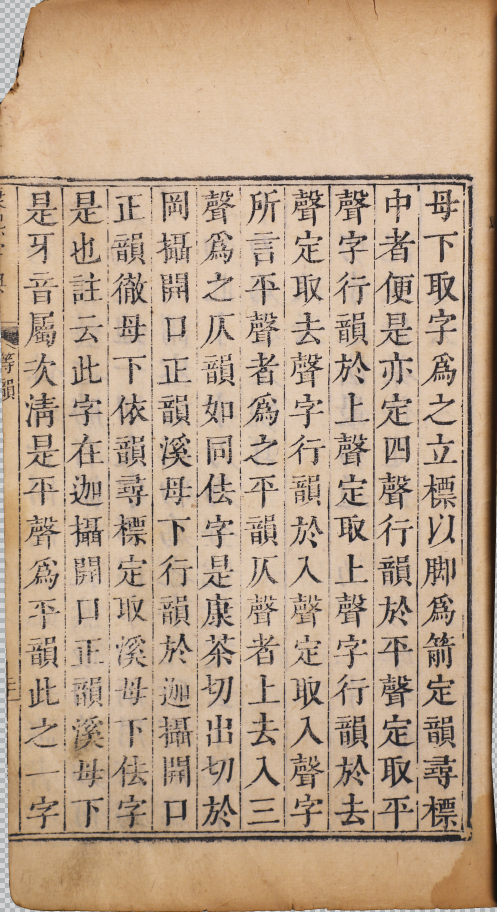 母下取字爲之立標以脚爲箭定韻尋標
中者便是亦定四聲行韻於平聲定取平
聲字行韻於上聲定取上聲字行韻於去
聲定取去聲字行韻於入聲定取入聲字
所言平聲者爲之平韻仄聲者上去入三
聲爲之仄韻如同佉字是康茶切出切於
岡攝開口正韻溪母下行韻於迦攝開口
正韻徹母下依韻尋標定取溪母下佉字
是也註云此字在迦攝開口正韻溪母下
是牙音屬次清是平聲爲平韻此之一字
等韻